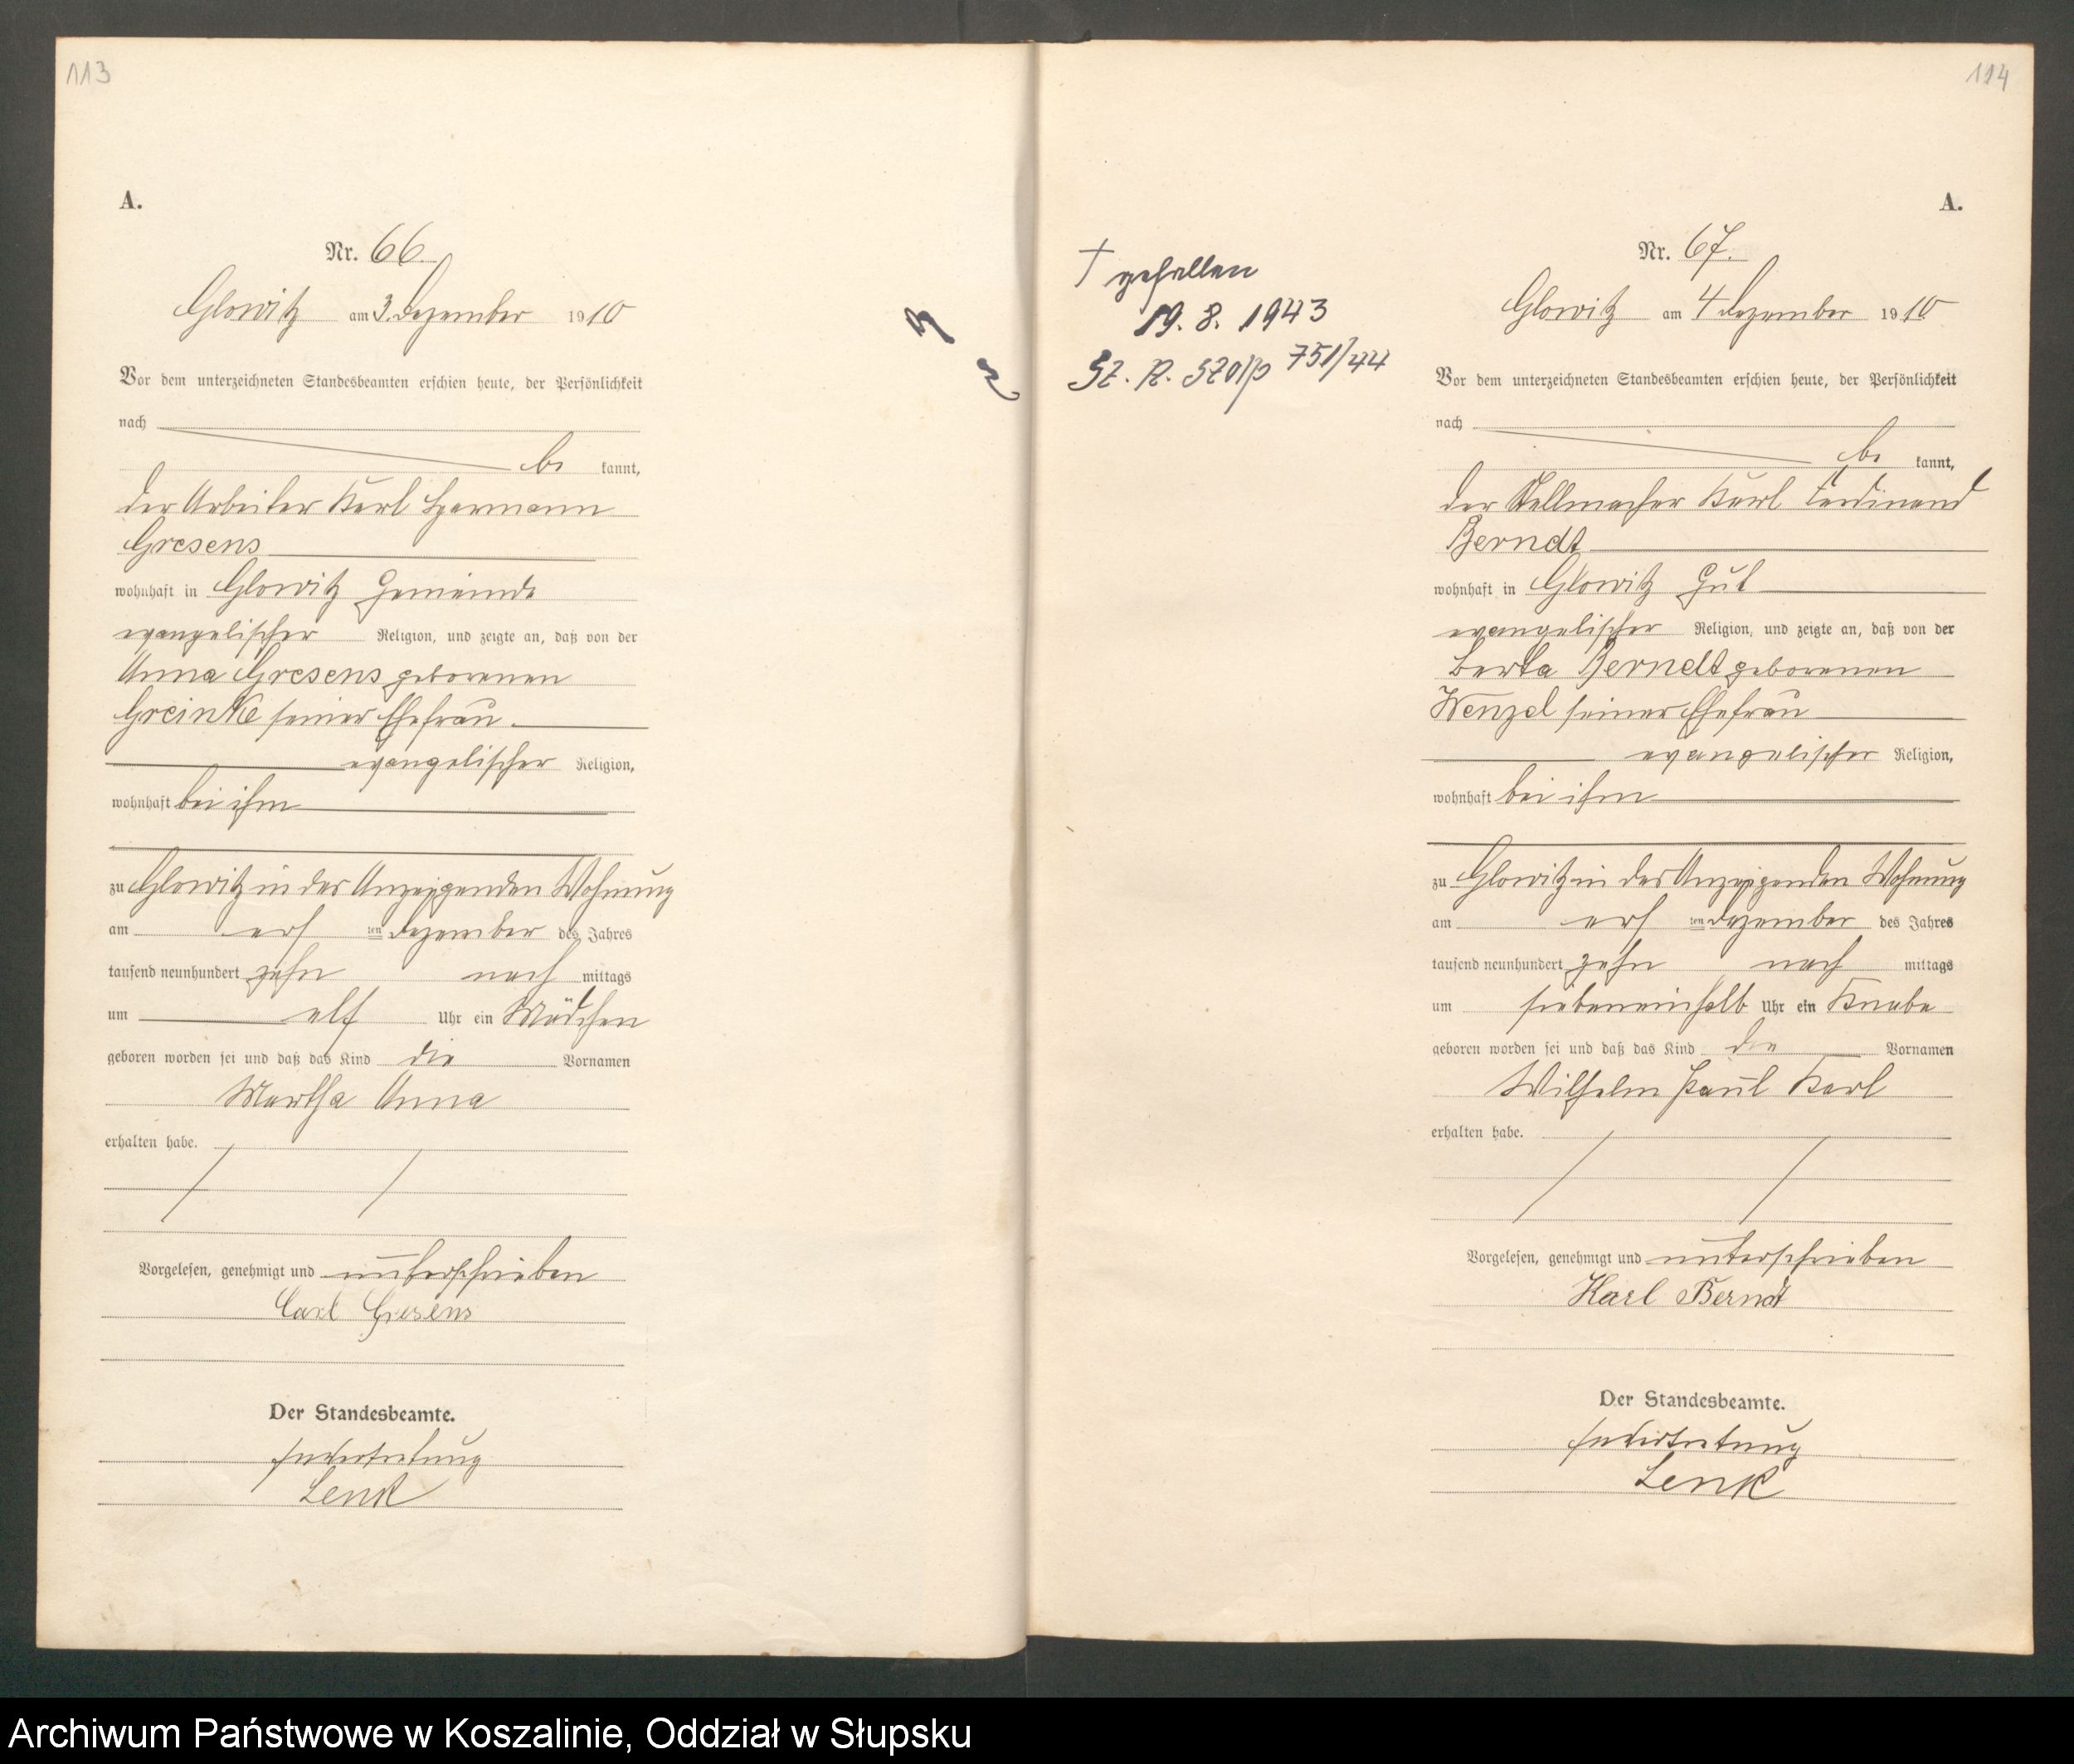 113
A.
Nr. 66.
Glowitz am 3. Dezember 1910
Vor dem unterzeichneten Standesbeamten erschien heute, der Persönlichkeit
nach
be kannt,
der Arbeiter Karl Hermann
Gresens
wohnhaft in Glowitz Gemeinde
evangelischer Religion, und zeigte an, daß von der
Anna Gresens geborenen
Greinke seiner Ehefrau.
evangelischer Religion,
wohnhaft bei ihm
zu Glowitz in des Anzeigenden Wohnung
am ersten Dezember des Jahres
tausend neunhundert zehn nach mittags
um elf Uhr ein Mädchen
geboren worden sei und daß das Kind die Vornamen
Martha Anna
erhalten habe.
Vorgelesen, genehmigt und unterschrieben
Carl Gresens
Der Standesbeamte.
In Vertretung
Lenk
114
A.
† gefallen
19. 8. 1943
St. A. Stolp 751/44
Nr. 67.
Glowitz am 4 Dezember 1910
Vor dem unterzeichneten Standesbeamten erschien heute, der Persönlichkeit
nach
be kannt,
der Stellmacher Karl Ferdinand
Berndt
wohnhaft in Glowitz Gut
evangelischer Religion, und zeigte an, daß von der
Berta Berndt geborenen
Wenzel seiner Ehefrau
evangelischer Religion,
wohnhaft bei ihm
zu Glowitz in des Anzeigenden Wohnung
am ersten Dezember des Jahres
tausend neunhundert zehn nach mittags
um siebeneinhalb Uhr ein Knabe
geboren worden sei und daß das Kind die Vornamen
Wilhelm Paul Karl
erhalten habe.
Vorgelesen, genehmigt und unterschrieben
Karl Berndt
Der Standesbeamte.
In Vertretung
Lenk
Archiwum Państwowe w Koszalinie, Oddział w Słupsku